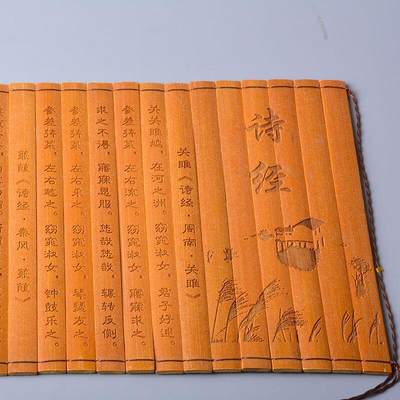 诗经
关雎《诗经·周南·关雎》
关关雎鸠，在河之洲。窈窕淑女，君子好逑。
参差荇菜，左右流之。窈窕淑女，寤寐求之。
求之不得，寤寐思服。悠哉悠哉，辗转反侧。
参差荇菜，左右采之。窈窕淑女，琴瑟友之。
参差荇菜，左右芼之。窈窕淑女，钟鼓乐之。
蒹葭《诗经·秦风·蒹葭》